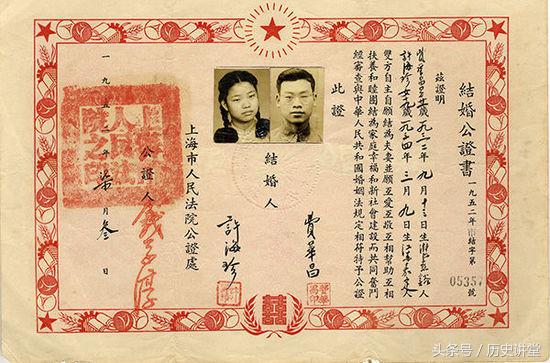 結婚公證書
一九五二年市結字第05357號
茲證明
九月十三日生
許海珍女 三月九日生
雙方自主自願結為夫妻並願互愛互敬互相幫助互相
扶養和睦團結為家庭幸福和新社會建設而共同奮鬥
經審查與中華人民共和國婚姻法規定相符特予公證
此證
結婚人
費華昌
許海珍
上海市人民法院公證處
公證人
上海市人民法院之印
一九五二年柒月叁日
頭条号 / 历史讲堂